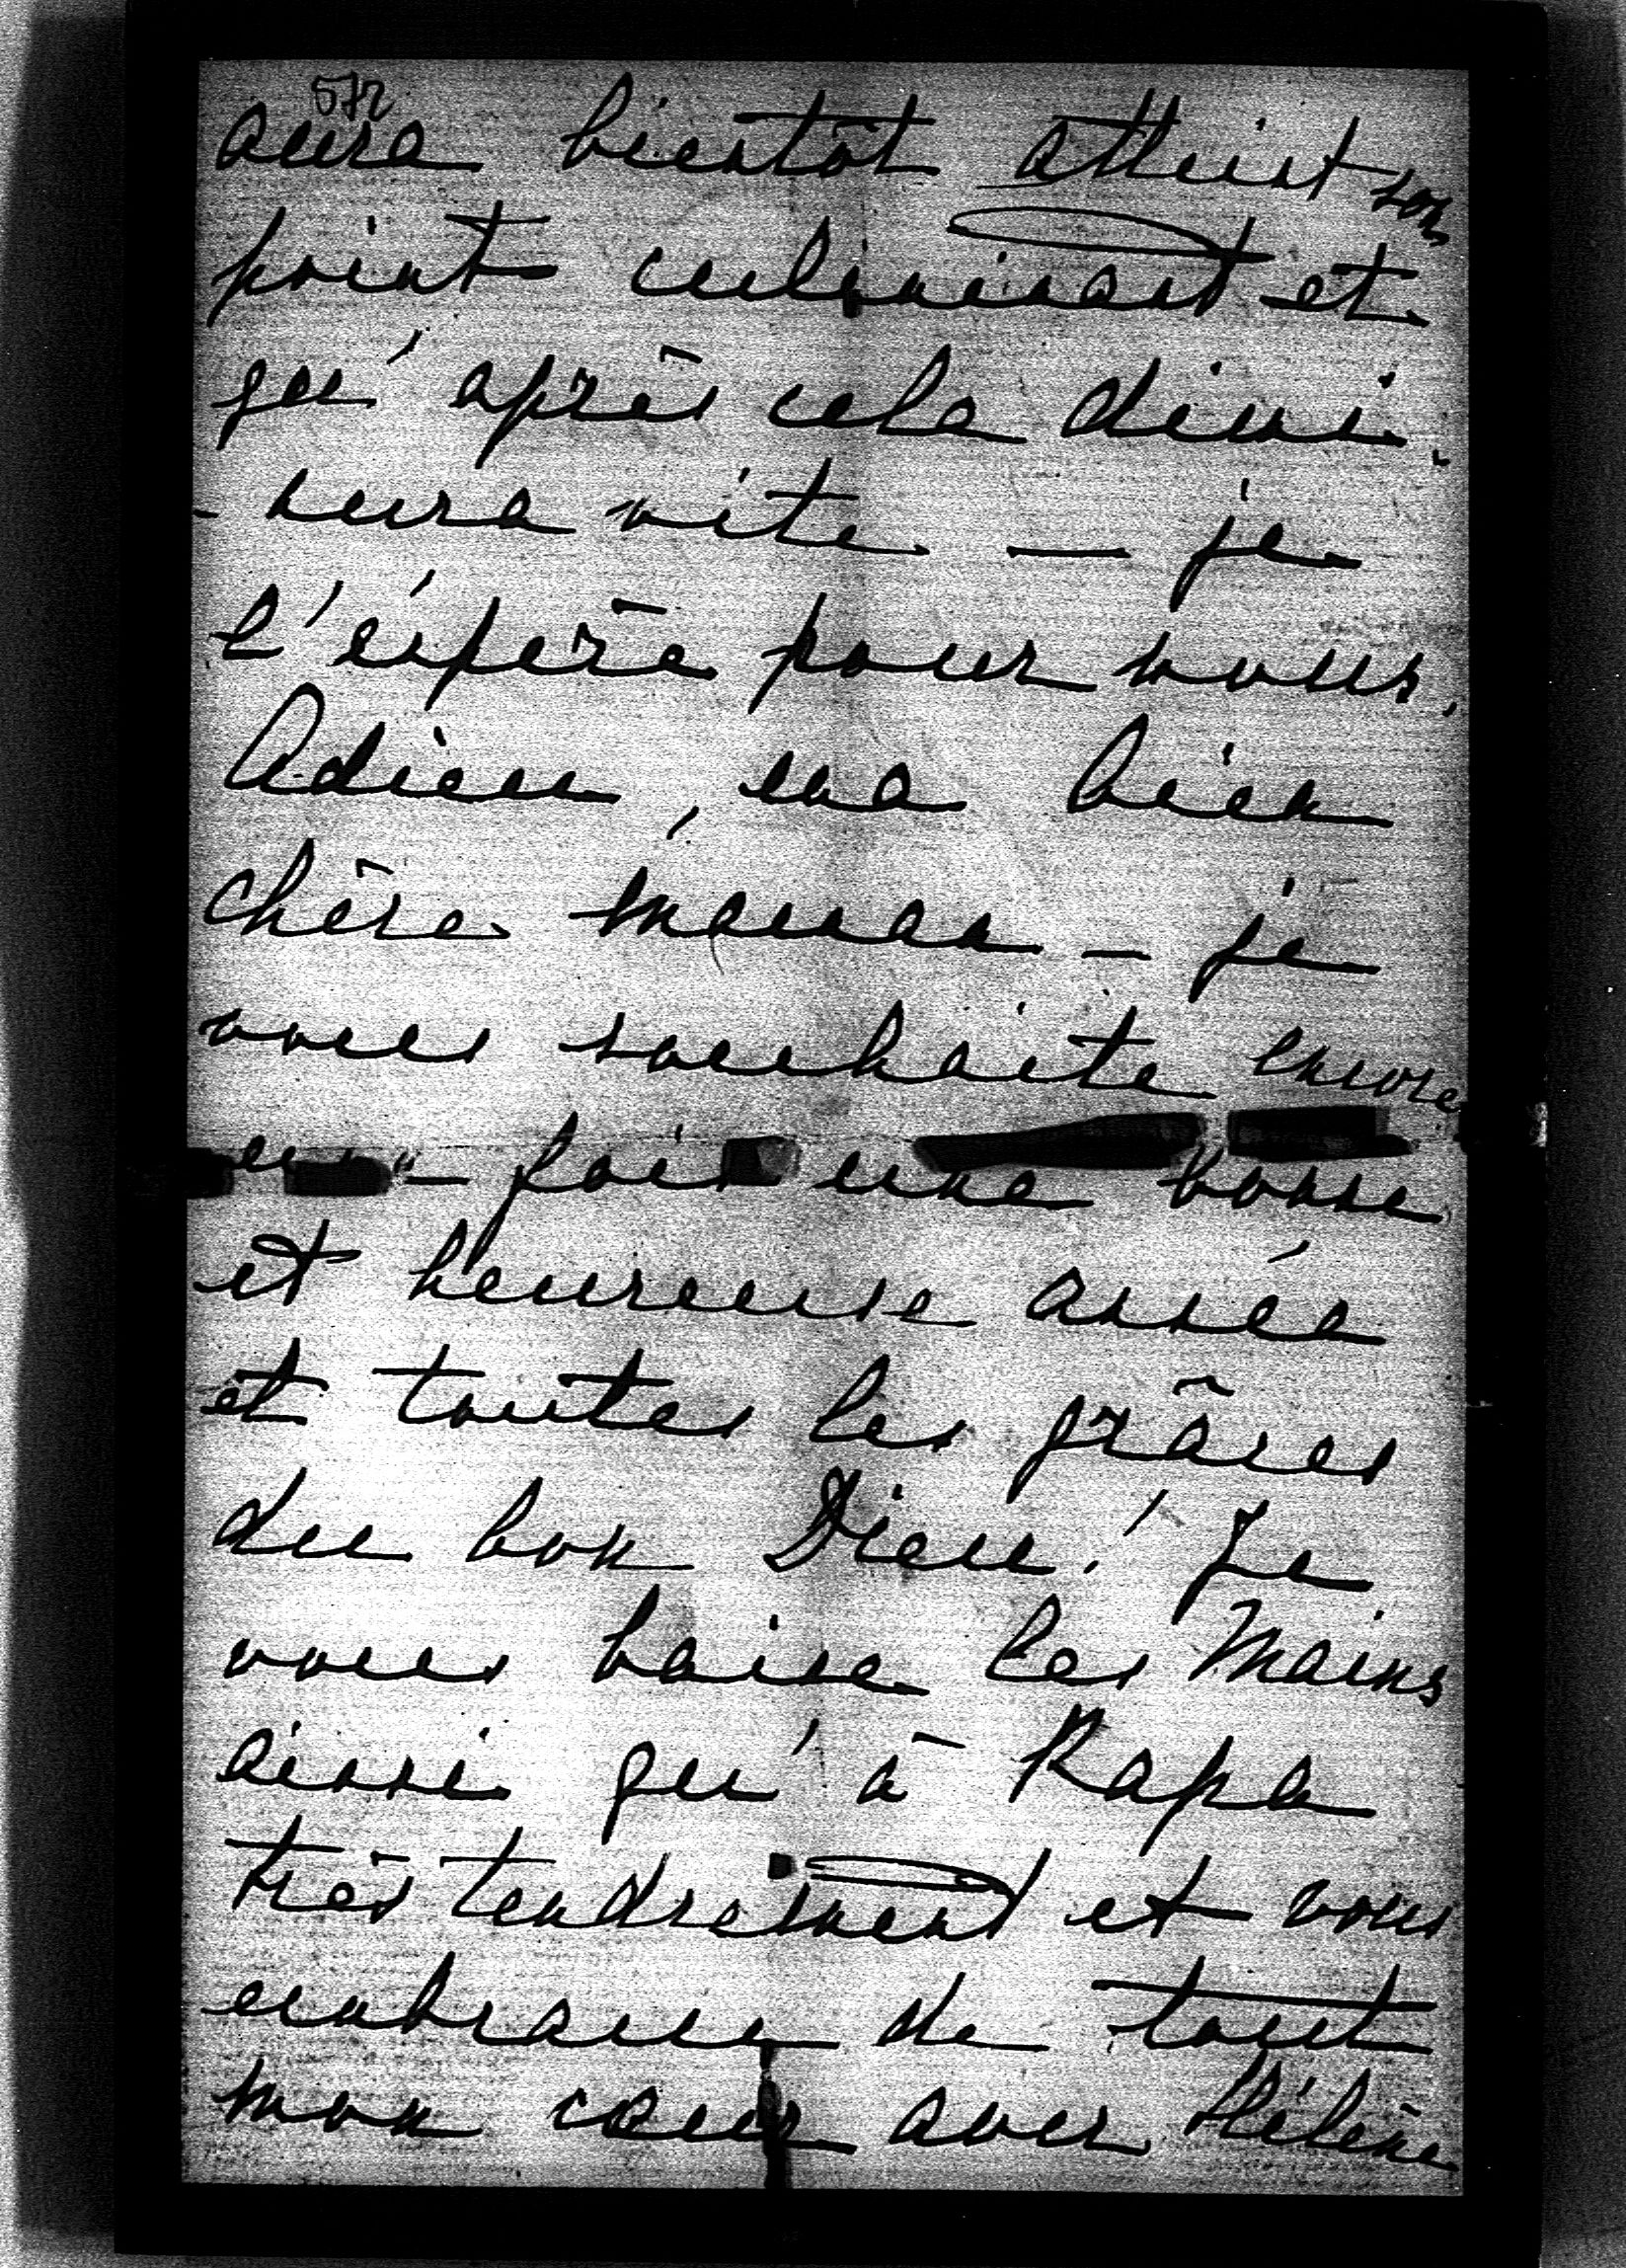 572
aura bientôt atteint son
point culminant et
qu'après cela dimi-
-nuera vite — je
l'espère pour vous.
Adieu, ma bien
chère Maman — je
vous souhaite encore
— fois une bonne
et heureuse année
et toutes les grâces
du bon Dieu! Je
vous baise les Mains
ainsi qu'à Papa
très tendrement et vous
embrasse de tout
mon cœur avec Hélène